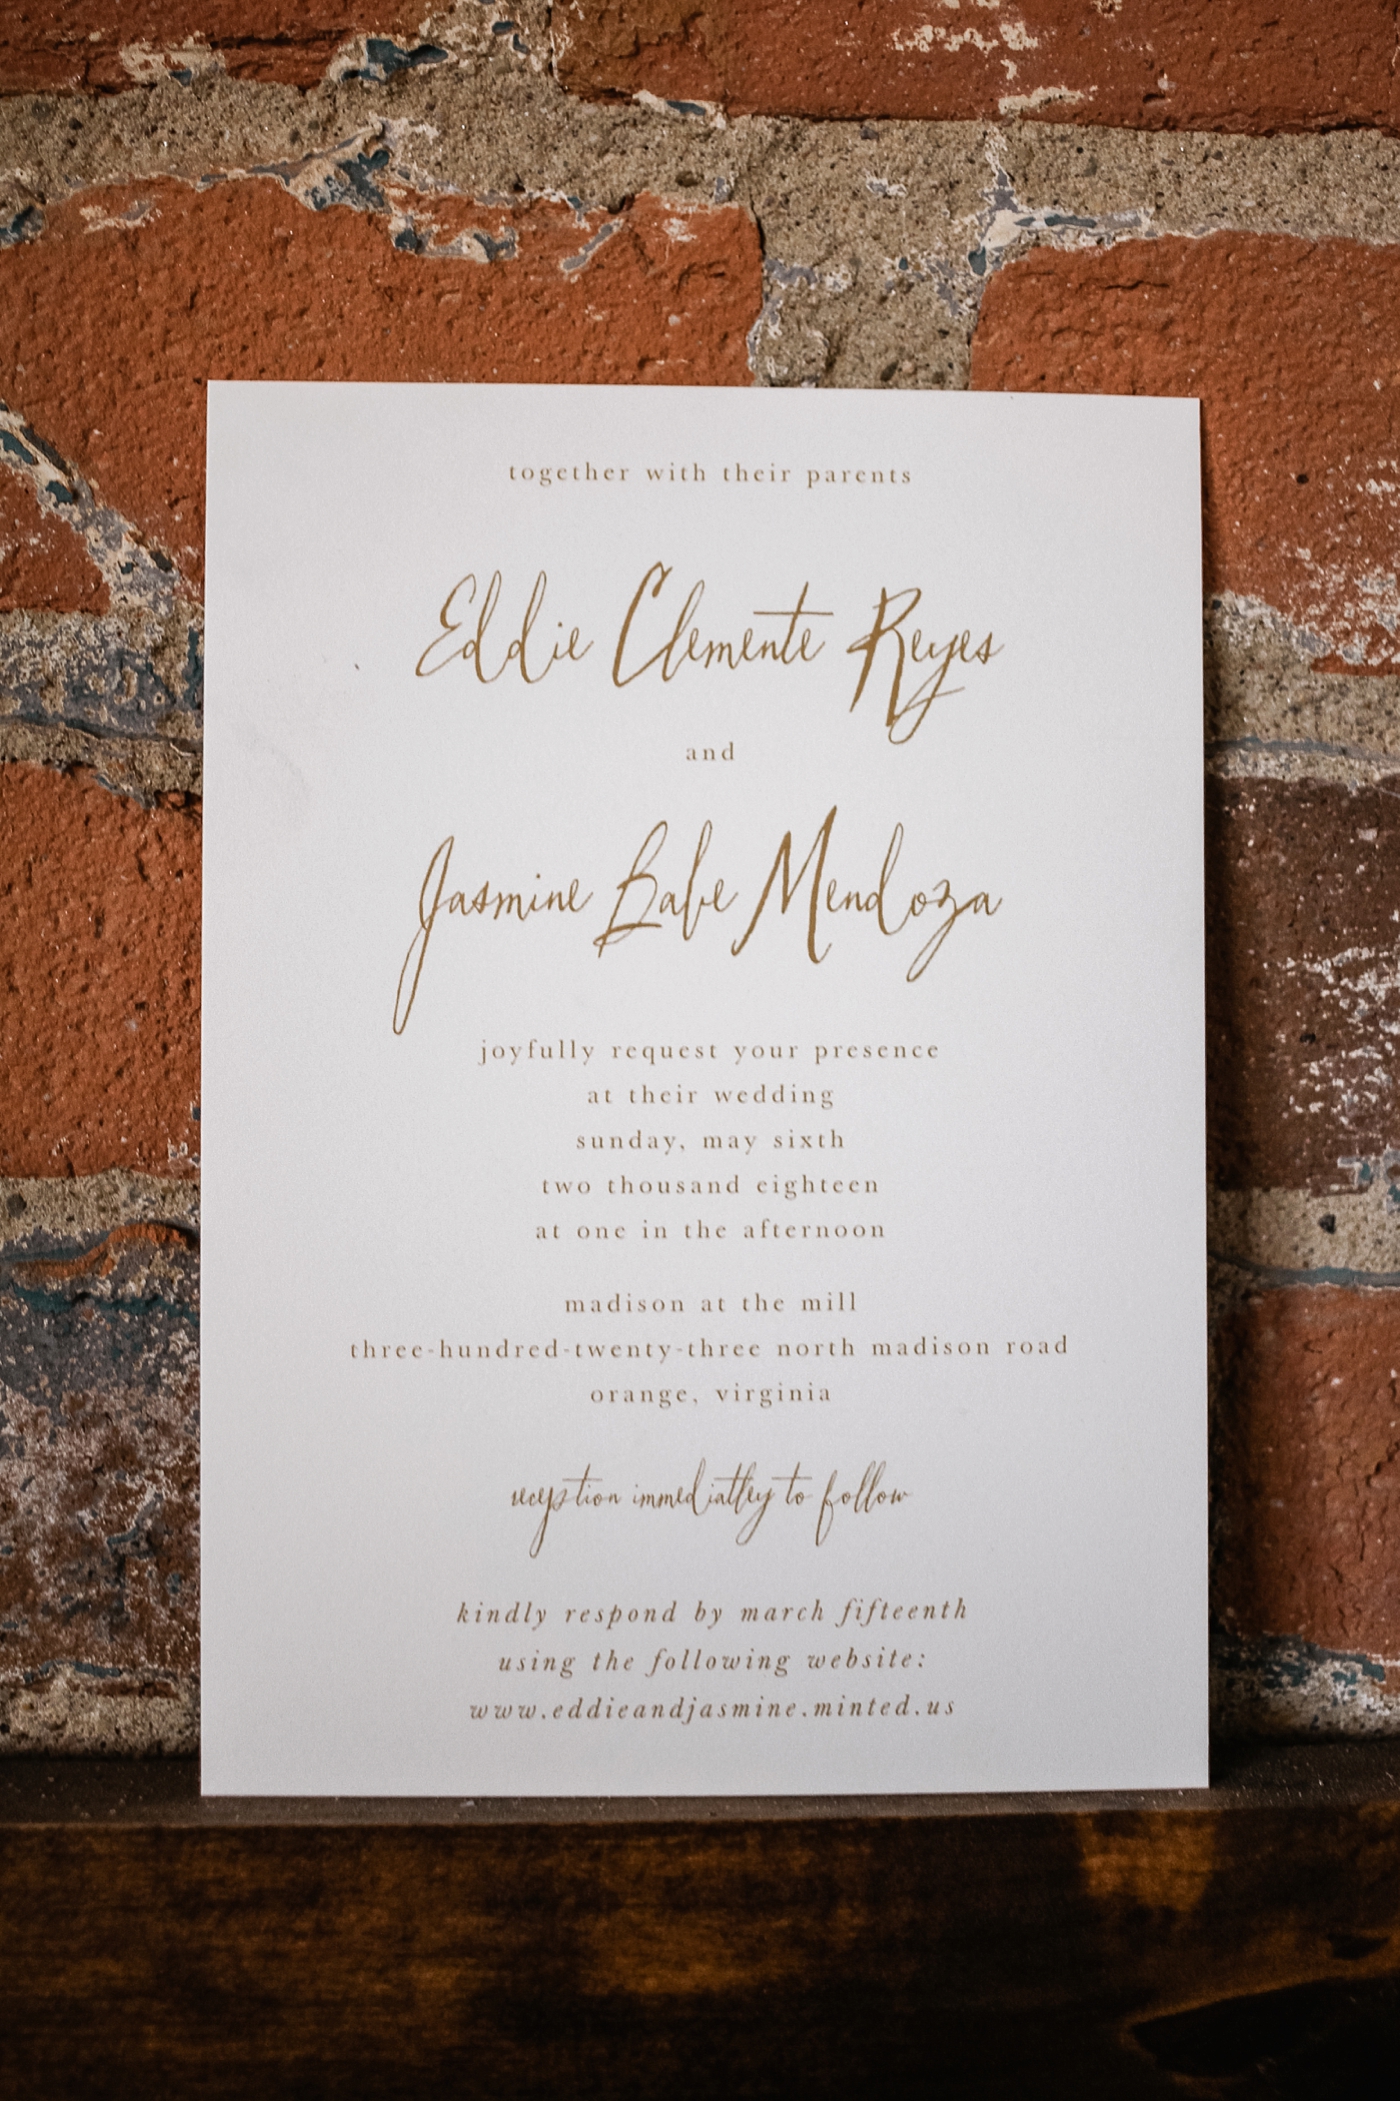 together with their parents
Eddie Clemente Reyes
and
Jasmine Babe Mendoza
joyfully request your presence
at their wedding
sunday, may sixth
two thousand eighteen
at one in the afternoon
madison at the mill
three-hundred-twenty-three north madison road
orange, virginia
reception immediatley to follow
kindly respond by march fifteenth
using the following website:
www.eddieandjasmine.minted.us